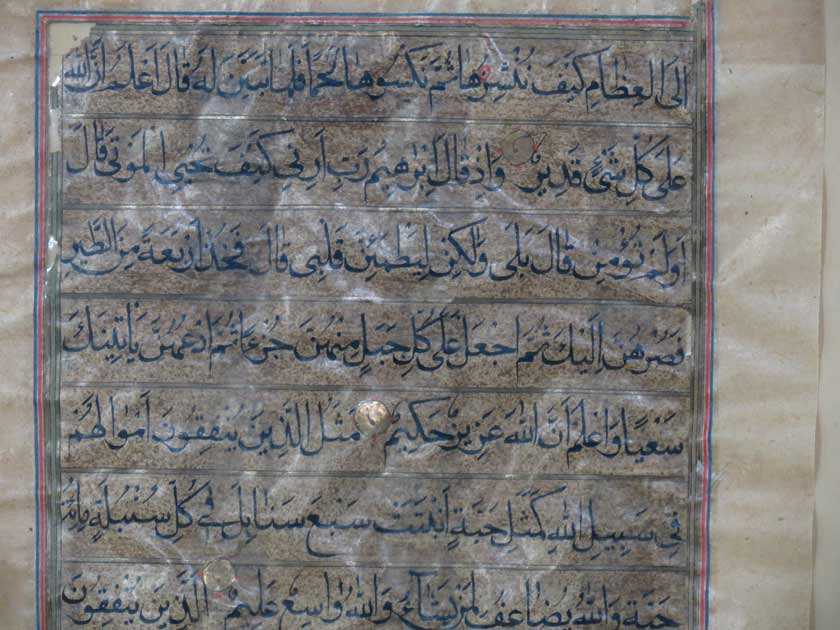 الَى الْعِظَامِ كَيْفَ نُنْشِزُهَا ثُمَّ نَكْسُوهَا لَحْمًا فَلَمَّا تَبَيَّنَ لَهُ قَالَ اَعْلَمُ اَنَّ اللهَ
عَلٰى كُلِّ شَیْءٍ قَدِيرٌ وَاِذْ قَالَ اِبْرٰهِيمُ رَبِّ اَرِنِى كَيْفَ تُحْيِى الْمَوْتٰى قَالَ
اَوَلَمْ تُؤْمِنْ قَالَ بَلٰى وَلٰكِنْ لِيَطْمَئِنَّ قَلْبِى قَالَ فَخُذْ اَرْبَعَةً مِنَ الطَّيْرِ
فَصُرْهُنَّ اِلَيْكَ ثُمَّ اجْعَلْ عَلٰى كُلِّ جَبَلٍ مِنْهُنَّ جُزْءًا ثُمَّ ادْعُهُنَّ يَاْتِينَكَ
سَعْيًا وَاعْلَمْ اَنَّ اللهَ عَزِيزٌ حَكِيمٌ مَثَلُ الَّذِينَ يُنْفِقُونَ اَمْوَالَهُمْ
فِى سَبِيلِ اللهِ كَمَثَلِ حَبَّةٍ اَنْبَتَتْ سَبْعَ سَنَابِلَ فِى كُلِّ سُنْبُلَةٍ مِائَةُ
حَبَّةٍ وَاللهُ يُضَاعِفُ لِمَنْ يَشَآءُ وَاللهُ وَاسِعٌ عَلِيمٌ اَلَّذِينَ يُنْفِقُونَ